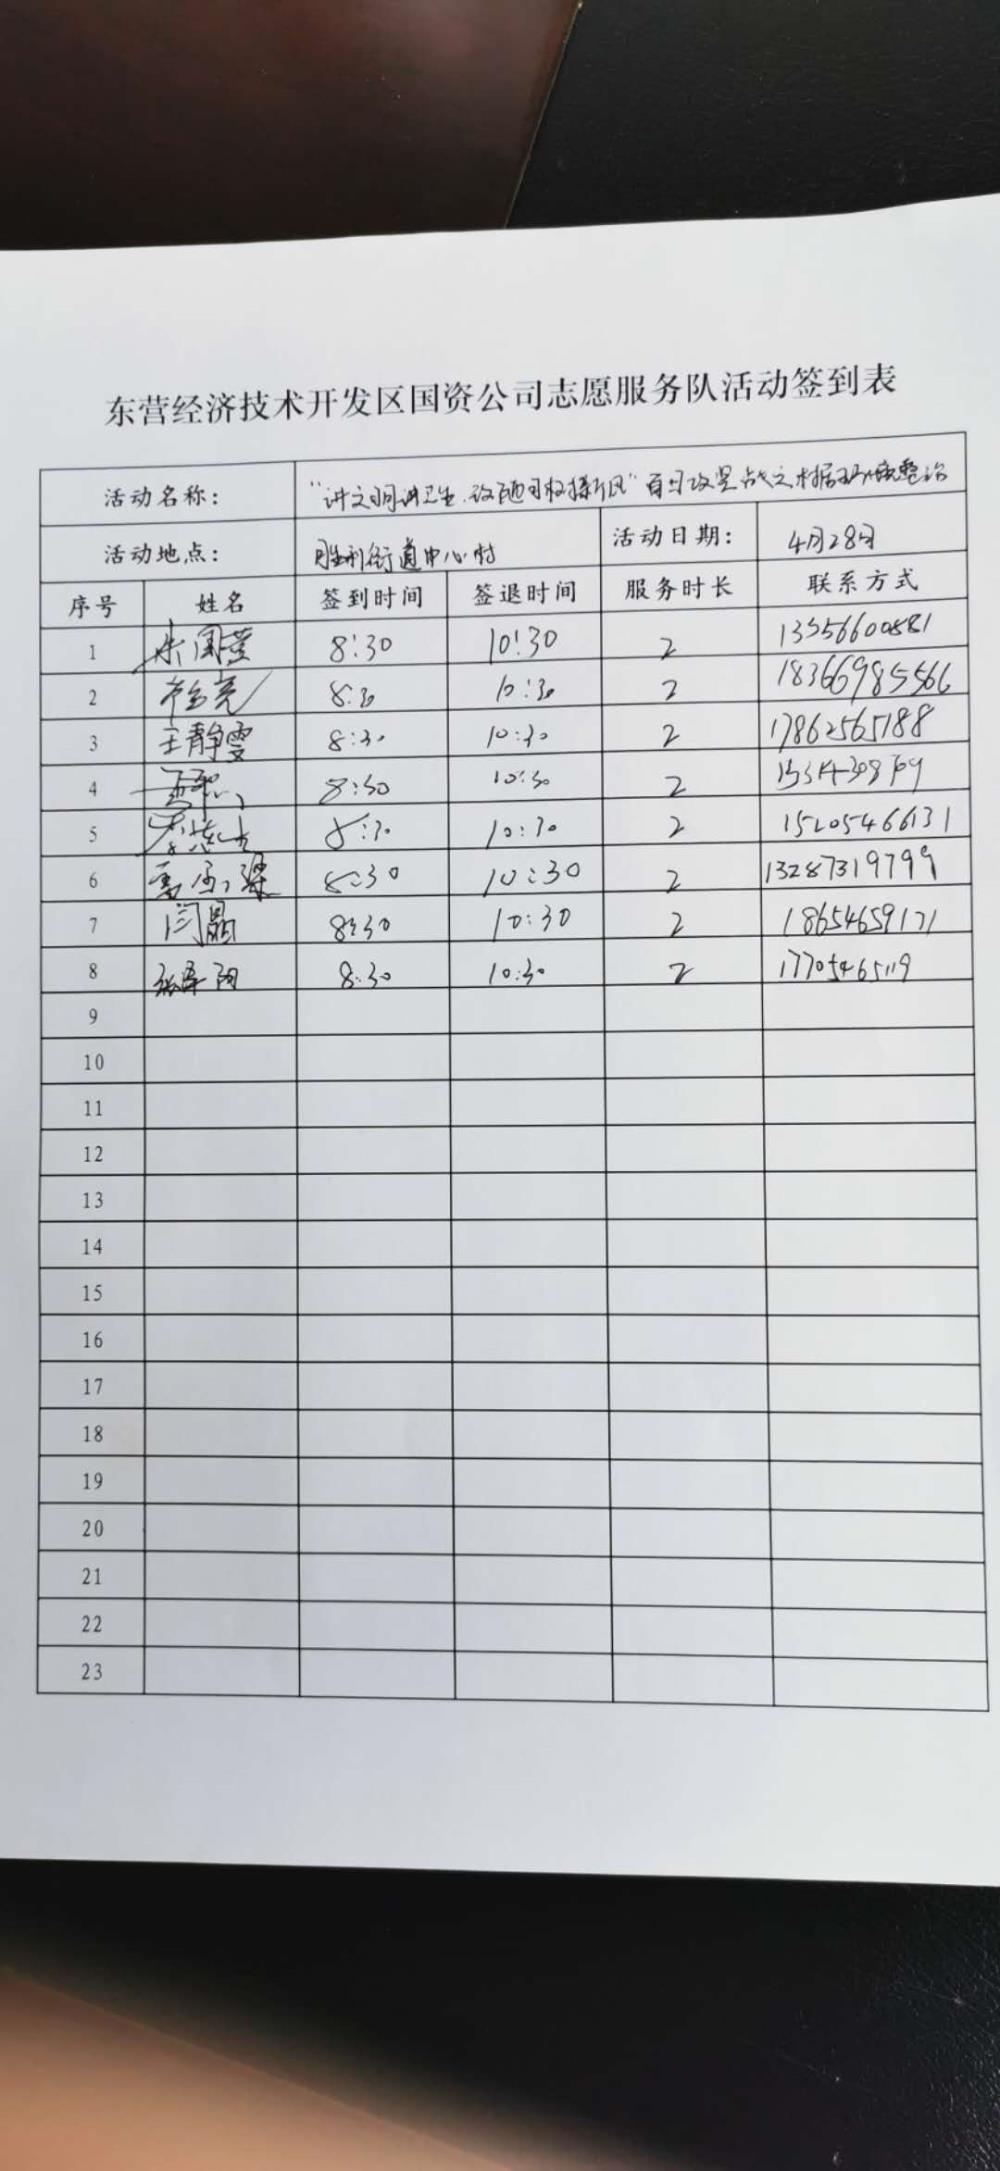 东营经济技术开发区国资公司志愿服务队活动签到表
活动名称: "讲文明讲卫生.改陋习树新风"百日攻坚战之村居环境整治
活动地点: 胜利街道中心村 活动日期: 4月28日
序号 姓名 签到时间 签退时间 服务时长 联系方式
1 8:30 10:30 2 13556600581
2 8:30 10:30 2 18366985566
3 王静雯 8:30 10:30 2 17862565188
4 8:30 10:30 2
5 8:30 10:30 2 15205466131
6 8:30 10:30 2 13287319799
7 闫晶 8:30 10:30 2 18654659171
8 8:30 10:30 2 17705465119
9
10
11
12
13
14
15
16
17
18
19
20
21
22
23